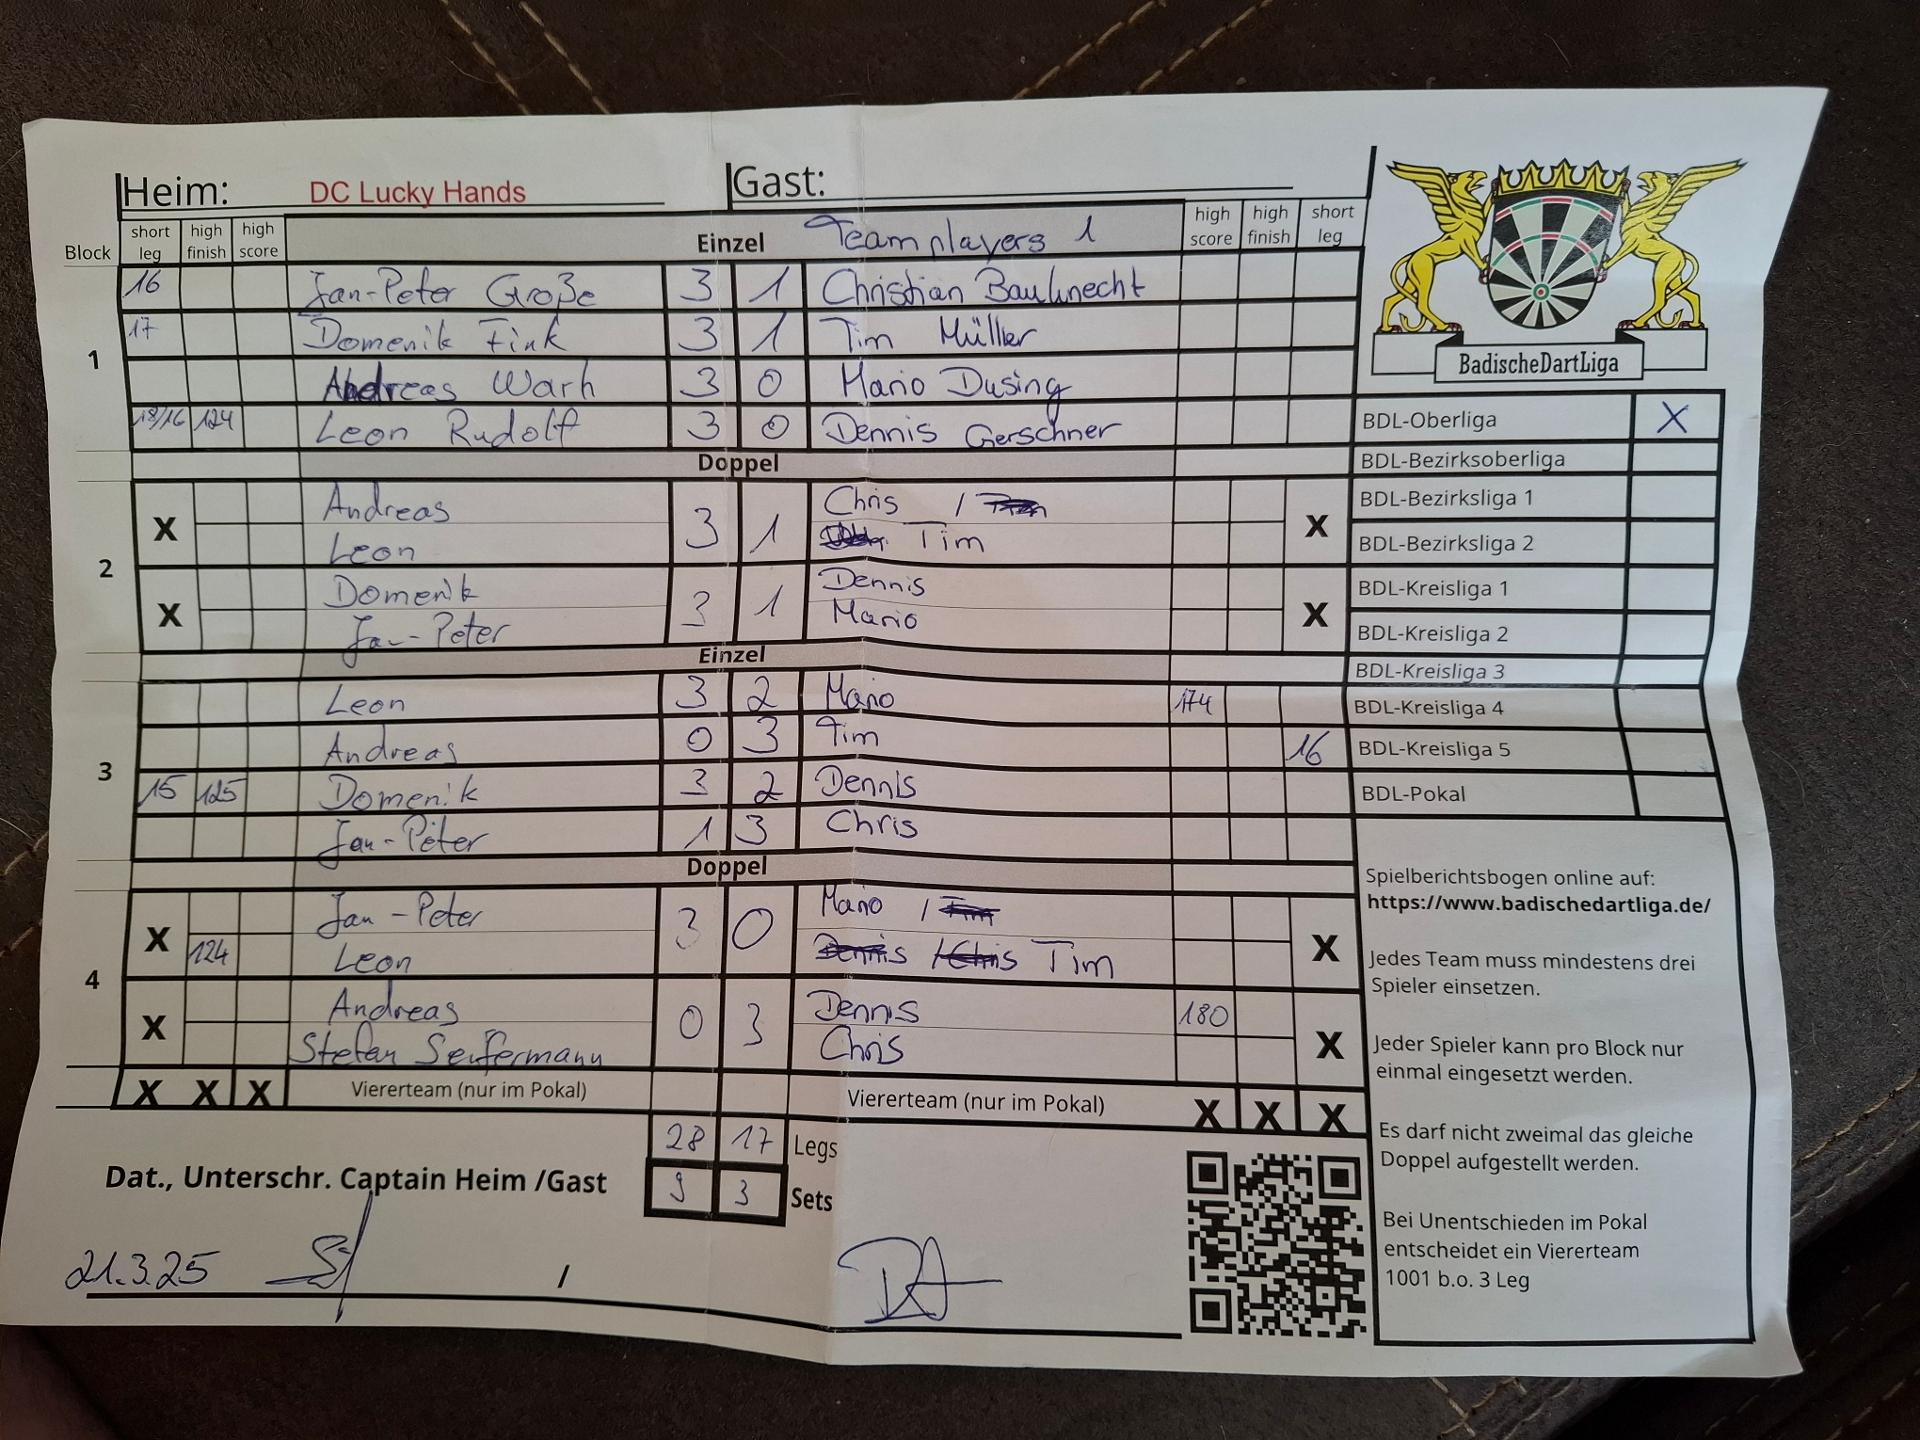 Heim: DC Lucky Hands Gast:
Block short leg high finish high score Einzel Teamplayers 1 high score high finish short leg
1
16 Jan-Peter Große 3 1 Christian Bauknecht
17 Domenik Fink 3 1 Tim Müller
Andreas Warh 3 0 Mario Dusing
18/16 124 Leon Rudolf 3 0 Dennis Gerschner
Doppel
2
X Andreas 3 1 Chris / X
Leon Tim
X Domenik 3 1 Dennis X
Jan-Peter Mario
Einzel
3
Leon 3 2 Mario 174
Andreas 0 3 Tim 16
15 125 Domenik 3 2 Dennis
Jan-Peter 1 3 Chris
Doppel
4
X Jan-Peter 3 0 Mario / Tim X
124 Leon Dennis / Chris Tim
X Andreas 0 3 Dennis 180 X
Stefan Seifermann Chris
X X X Viererteam (nur im Pokal) Viererteam (nur im Pokal) X X X
28 17 Legs
9 3 Sets
Dat., Unterschr. Captain Heim /Gast
21.3.25 /
BadischeDartLiga
BDL-Oberliga X
BDL-Bezirksoberliga
BDL-Bezirksliga 1
BDL-Bezirksliga 2
BDL-Kreisliga 1
BDL-Kreisliga 2
BDL-Kreisliga 3
BDL-Kreisliga 4
BDL-Kreisliga 5
BDL-Pokal
Spielberichtsbogen online auf:
https://www.badischedartliga.de/
Jedes Team muss mindestens drei
Spieler einsetzen.
Jeder Spieler kann pro Block nur
einmal eingesetzt werden.
Es darf nicht zweimal das gleiche
Doppel aufgestellt werden.
Bei Unentschieden im Pokal
entscheidet ein Viererteam
1001 b.o. 3 Leg